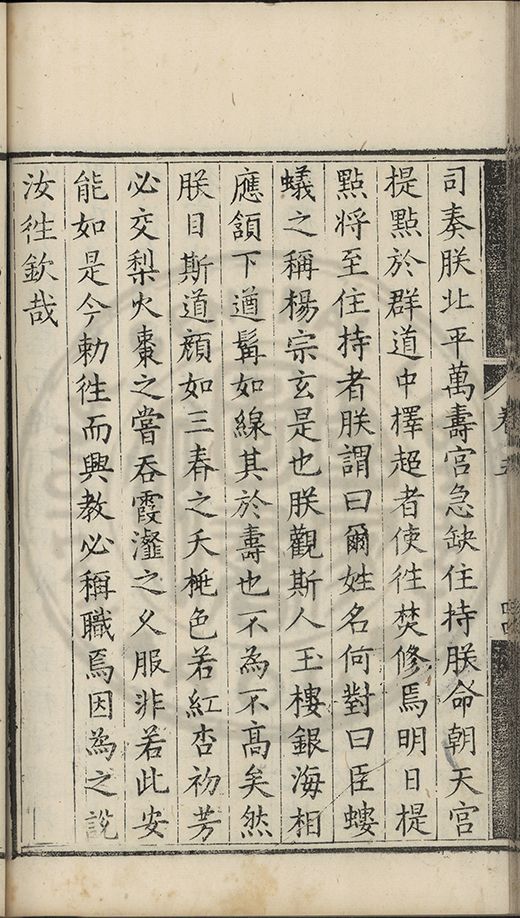 司奏朕北平萬壽宮急缺住持朕命朝天宮
提點於群道中擇超者使徃焚修焉明日提
點将至住持者朕謂曰爾姓名何對曰臣螻
蟻之稱楊宗玄是也朕觀斯人玉樓銀海相
應頷下遒髯如線其於壽也不為不高矣然
朕目斯道顔如三春之夭桃色若紅杏初芳
必交梨火棗之嘗吞霞瀣之乆服非若此安
能如是今勅徃而興教必稱職焉因為之說
汝徃欽哉
卷五